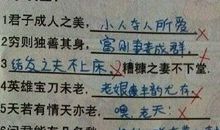 1君子成人之美，小人夺人所爱
2穷则独善其身，富则妻妾成群。
3结发之夫不上床，糟糠之妻不下堂。
4英雄宝刀未老，老娘风韵犹存
5天若有情天亦老，